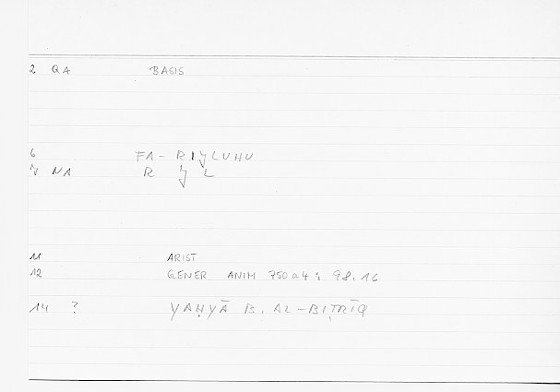 2 QA BASIS
6 FA- RIǦLUHU
7 NA R Ǧ L
11 ARIST
12 GENER ANIM 750a4; 98.16
14 ? YAḤYĀ B. AL-BIṬRĪQ